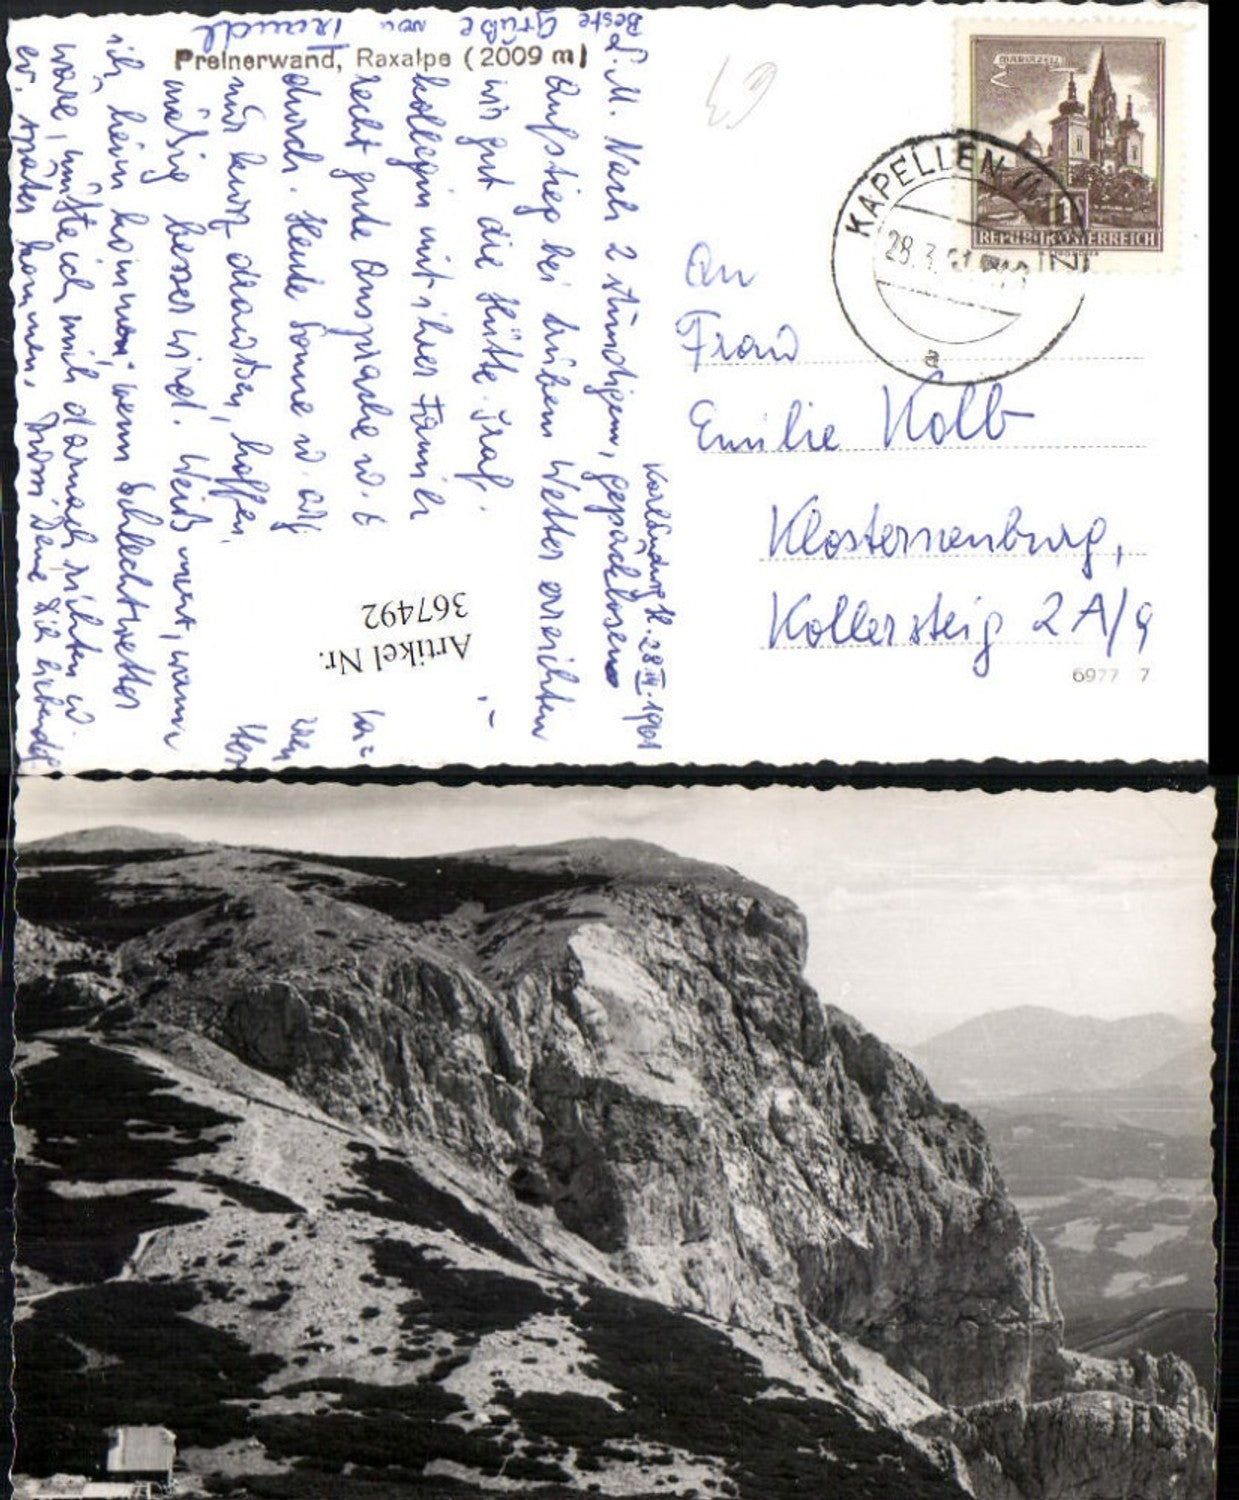 Preinerwand, Raxalpe (2009 m)
MARIAZELL
REPUBLIK ÖSTERREICH
KAPELLEN
28.3.
a
An
Frau
Emilie Kolb
Klosterneuburg,
Kollersteig 2A/9
6977 7
28. III. 1961
L. M. Nach 2 stündigem, gepäcklosen
Aufstieg bei trübem Wetter erreichten
wir gut die Hütte. Traf
Kollegin mit ihrer Familie
recht gute Aussprache w.
durch. Heute Sonne w. auf
nur kurz draußen, hoffen,
mäßig besser wird. Weiß nicht, wann
ich heim komme. wenn Schlechtwetter
wäre, müßte ich mich darnach richten u.
ev. später kommen. Deine Dir liebende
Beste Grüße von Traudl
Artikel Nr.
367492